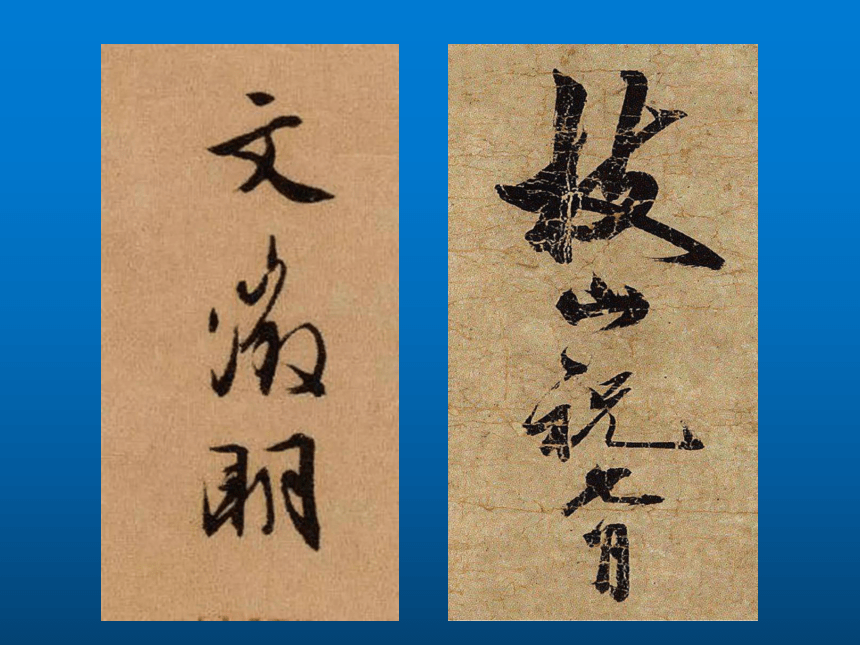 文徵明
枝山祝允明